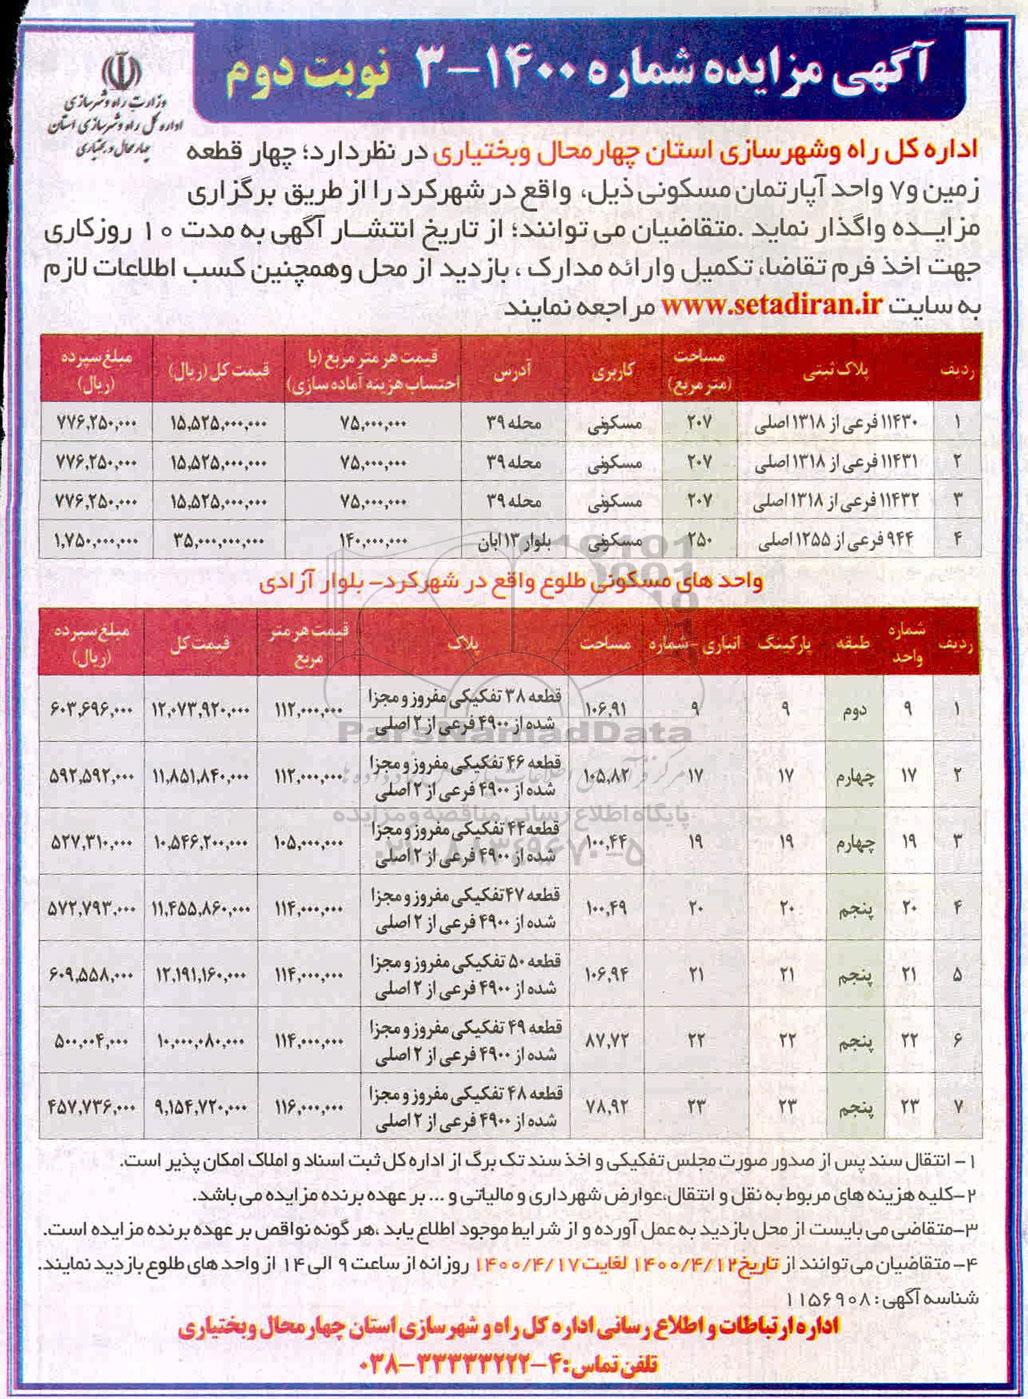 آگهی مزایده شماره ۱۴۰۰-۳ نوبت دوم
وزارت راه و شهرسازی
اداره کل راه و شهرسازی استان
چهارمحال و بختیاری
اداره کل راه وشهرسازی استان چهارمحال وبختیاری در نظردارد؛ چهار قطعه
زمین و۷ واحد آپارتمان مسکونی ذیل، واقع در شهرکرد را از طریق برگزاری
مزایده واگذار نماید .متقاضیان می توانند؛ از تاریخ انتشار آگهی به مدت ۱۰ روزکاری
جهت اخذ فرم تقاضا، تکمیل وارائه مدارک ، بازدید از محل وهمچنین کسب اطلاعات لازم
به سایت www.setadiran.ir مراجعه نمایند
ردیف پلاک ثبتی مساحت (متر مربع) کاربری آدرس قیمت هر متر مربع (با احتساب هزینه آماده سازی) قیمت کل (ریال) مبلغ سپرده (ریال)
۱ ۱۱۴۳۰ فرعی از ۱۳۱۸ اصلی ۲۰۷ مسکونی محله ۳۹ ۷۵,۰۰۰,۰۰۰ ۱۵,۵۲۵,۰۰۰,۰۰۰ ۷۷۶,۲۵۰,۰۰۰
۲ ۱۱۴۳۱ فرعی از ۱۳۱۸ اصلی ۲۰۷ مسکونی محله ۳۹ ۷۵,۰۰۰,۰۰۰ ۱۵,۵۲۵,۰۰۰,۰۰۰ ۷۷۶,۲۵۰,۰۰۰
۳ ۱۱۴۳۲ فرعی از ۱۳۱۸ اصلی ۲۰۷ مسکونی محله ۳۹ ۷۵,۰۰۰,۰۰۰ ۱۵,۵۲۵,۰۰۰,۰۰۰ ۷۷۶,۲۵۰,۰۰۰
۴ ۹۴۴ فرعی از ۱۲۵۵ اصلی ۲۵۰ مسکونی بلوار ۱۳ ابان ۱۴۰,۰۰۰,۰۰۰ ۳۵,۰۰۰,۰۰۰,۰۰۰ ۱,۷۵۰,۰۰۰,۰۰۰
واحد های مسکونی طلوع واقع در شهرکرد- بلوار آزادی
ردیف شماره واحد طبقه پارکینگ انباری -شماره مساحت پلاک قیمت هر متر مربع قیمت کل مبلغ سپرده (ریال)
۱ ۹ دوم ۹ ۹ ۱۰۶,۹۱ قطعه ۳۸ تفکیکی مفروز و مجزا شده از ۴۹۰۰ فرعی از ۲ اصلی ۱۱۲,۰۰۰,۰۰۰ ۱۲,۰۷۳,۹۲۰,۰۰۰ ۶۰۳,۶۹۶,۰۰۰
۲ ۱۷ چهارم ۱۷ ۱۷ ۱۰۵,۸۲ قطعه ۴۶ تفکیکی مفروز و مجزا شده از ۴۹۰۰ فرعی از ۲ اصلی ۱۱۲,۰۰۰,۰۰۰ ۱۱,۸۵۱,۸۴۰,۰۰۰ ۵۹۲,۵۹۲,۰۰۰
۳ ۱۹ چهارم ۱۹ ۱۹ ۱۰۰,۴۴ قطعه ۴۴ تفکیکی مفروز و مجزا شده از ۴۹۰۰ فرعی از ۲ اصلی ۱۰۵,۰۰۰,۰۰۰ ۱۰,۵۴۶,۲۰۰,۰۰۰ ۵۲۷,۳۱۰,۰۰۰
۴ ۲۰ پنجم ۲۰ ۲۰ ۱۰۰,۴۹ قطعه ۴۷ تفکیکی مفروز و مجزا شده از ۴۹۰۰ فرعی از ۲ اصلی ۱۱۴,۰۰۰,۰۰۰ ۱۱,۴۵۵,۸۶۰,۰۰۰ ۵۷۲,۷۹۳,۰۰۰
۵ ۲۱ پنجم ۲۱ ۲۱ ۱۰۶,۹۴ قطعه ۵۰ تفکیکی مفروز و مجزا شده از ۴۹۰۰ فرعی از ۲ اصلی ۱۱۴,۰۰۰,۰۰۰ ۱۲,۱۹۱,۱۶۰,۰۰۰ ۶۰۹,۵۵۸,۰۰۰
۶ ۲۲ پنجم ۲۲ ۲۲ ۸۷,۷۲ قطعه ۴۹ تفکیکی مفروز و مجزا شده از ۴۹۰۰ فرعی از ۲ اصلی ۱۱۴,۰۰۰,۰۰۰ ۱۰,۰۰۰,۰۸۰,۰۰۰ ۵۰۰,۰۰۴,۰۰۰
۷ ۲۳ پنجم ۲۳ ۲۳ ۷۸,۹۲ قطعه ۴۸ تفکیکی مفروز و مجزا شده از ۴۹۰۰ فرعی از ۲ اصلی ۱۱۶,۰۰۰,۰۰۰ ۹,۱۵۴,۷۲۰,۰۰۰ ۴۵۷,۷۳۶,۰۰۰
ParsNamadData
پایگاه اطلاع رسانی مناقصه و مزایده
۱- انتقال سند پس از صدور صورت مجلس تفکیکی و اخذ سند تک برگ از اداره کل ثبت اسناد و املاک امکان پذیر است.
۲-کلیه هزینه های مربوط به نقل و انتقال،عوارض شهرداری و مالیاتی و ... بر عهده برنده مزایده می باشد.
۳-متقاضی می بایست از محل بازدید به عمل آورده و از شرایط موجود اطلاع یابد ،هر گونه نواقص بر عهده برنده مزایده است.
۴- متقاضیان می توانند از تاریخ ۱۴۰۰/۴/۱۲ لغایت ۱۴۰۰/۴/۱۷ روزانه از ساعت ۹ الی ۱۴ از واحد های طلوع بازدید نمایند.
شناسه آگهی: ۱۱۵۶۹۰۸
اداره ارتباطات و اطلاع رسانی اداره کل راه و شهرسازی استان چهارمحال وبختیاری
تلفن تماس: ۴-۳۳۳۳۳۲۲۲-۰۳۸